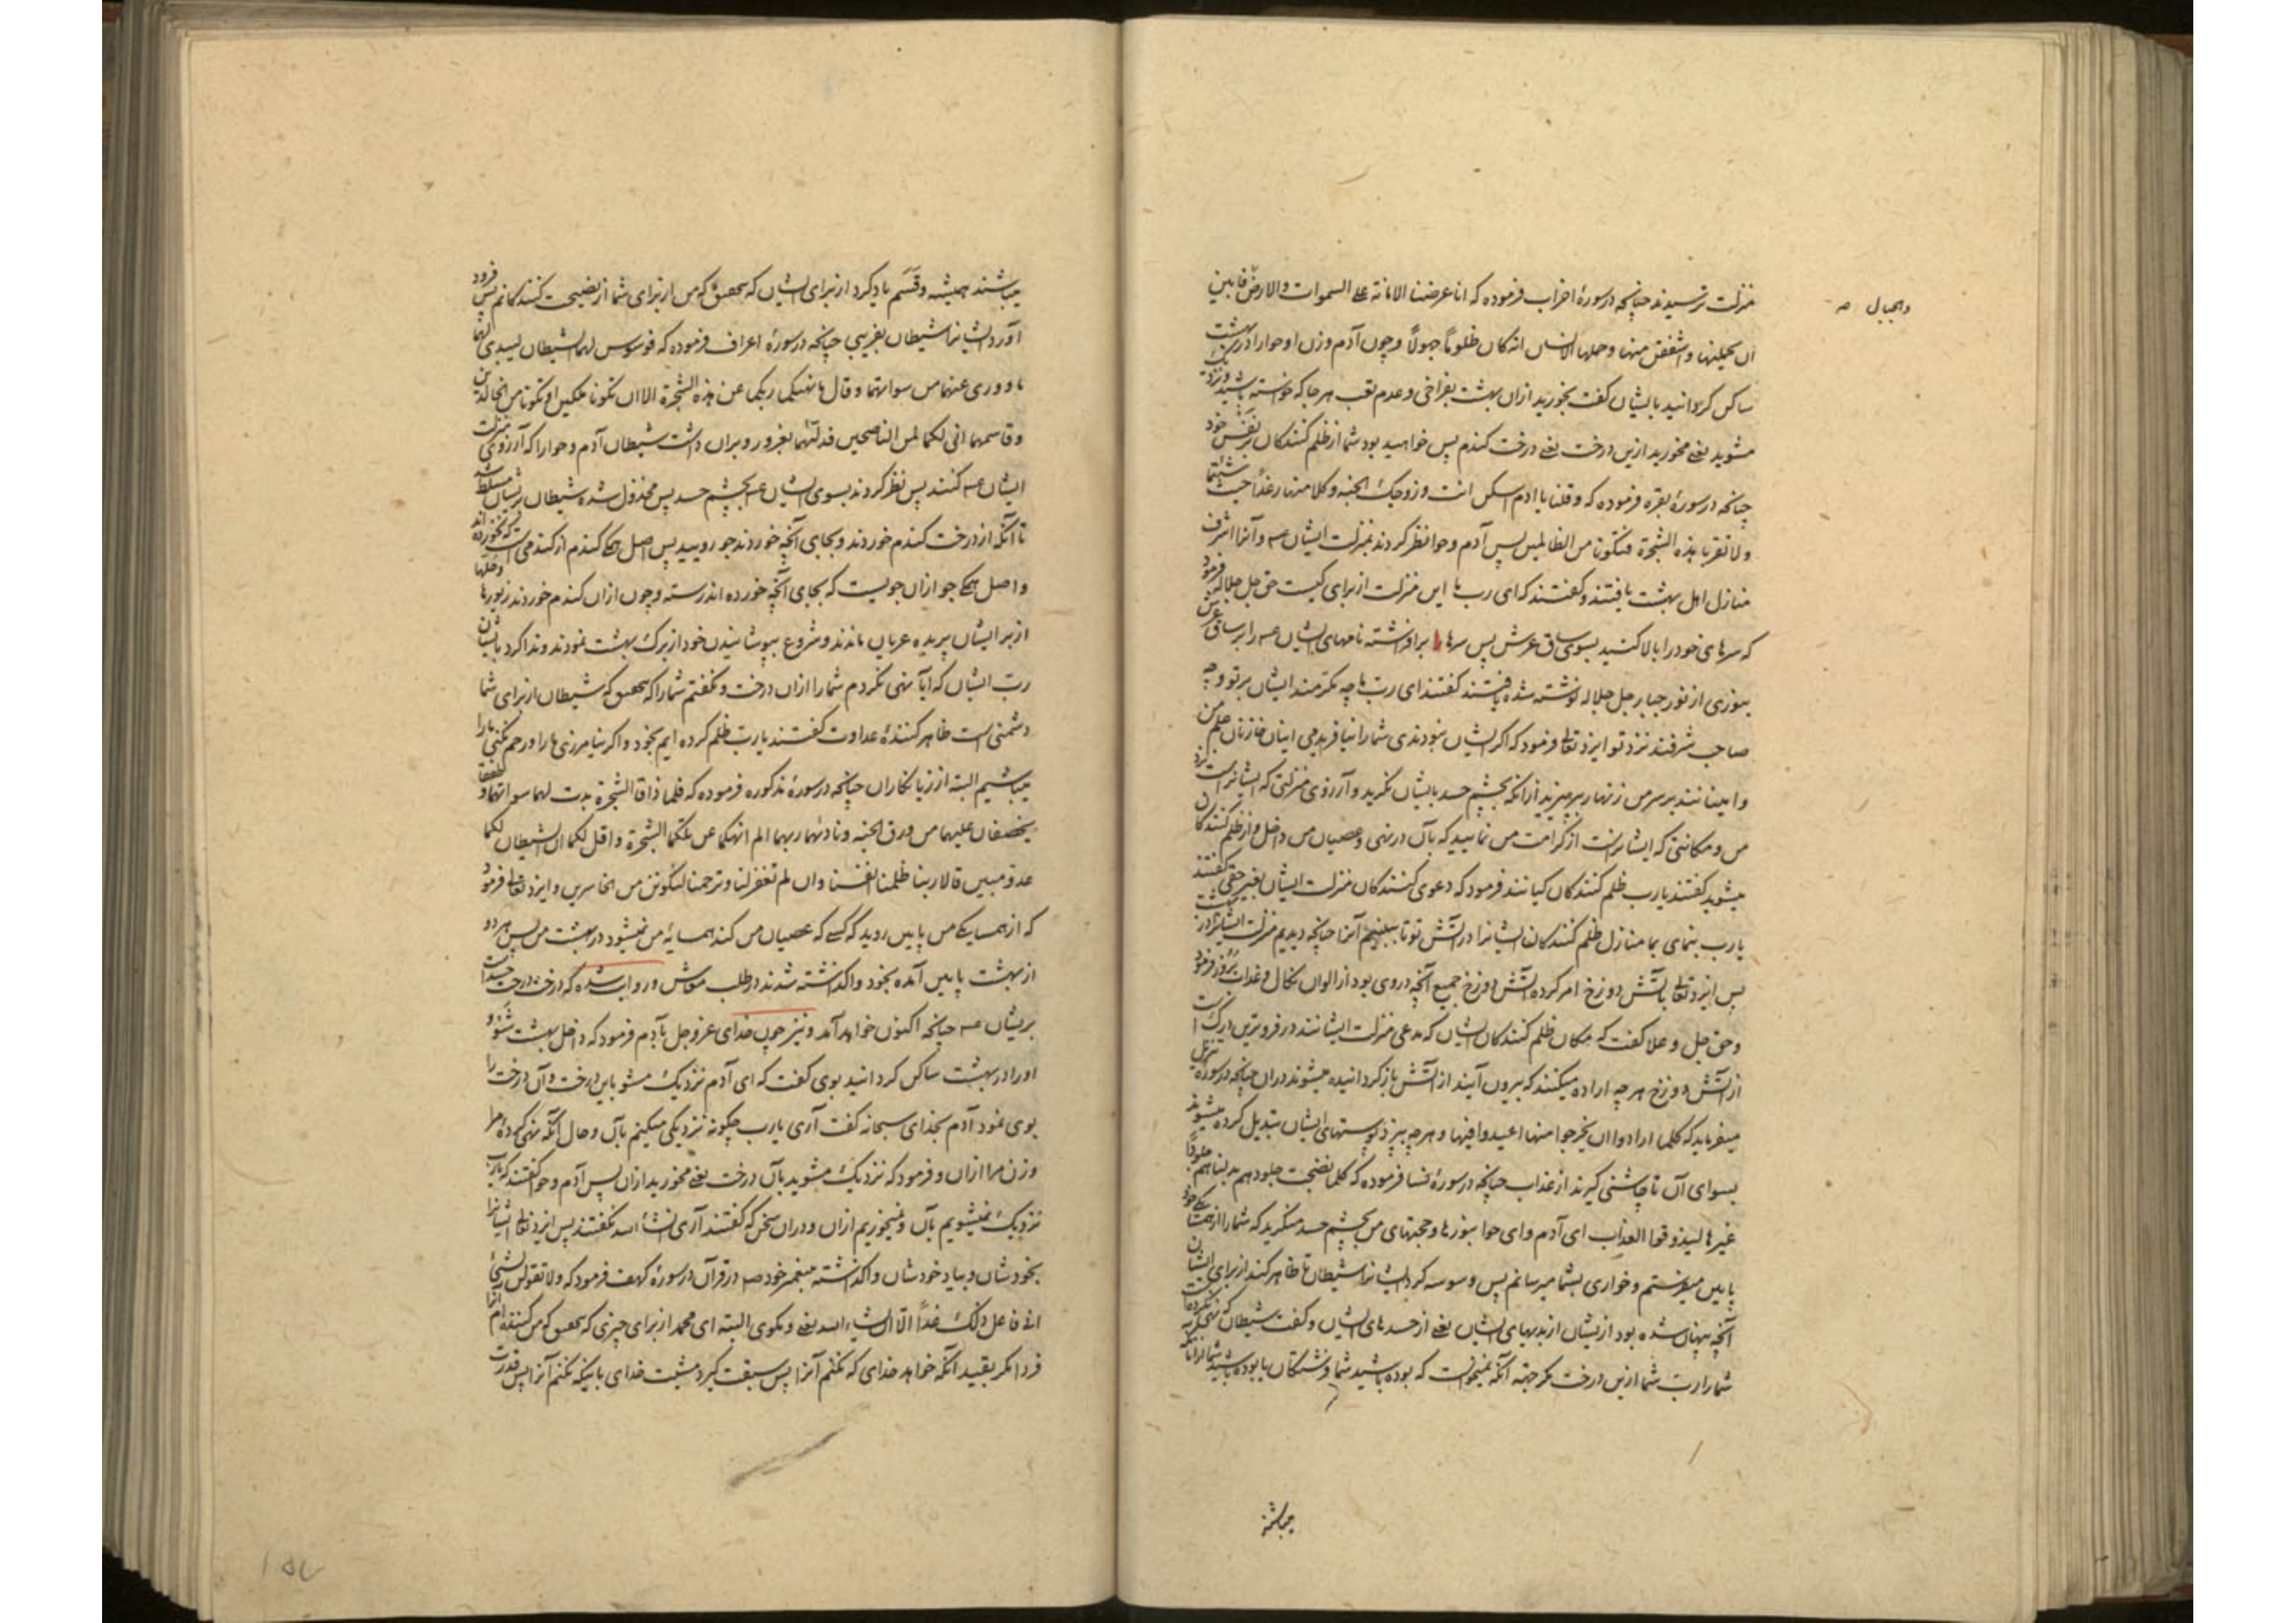 منزلت ترسیدند چنانچه در سورهٔ احزاب فرموده که انا عرضنا الامانة علی السموات والارض فابین
والجبال صه
ان یحملنها واشفقن منها وحملها الانسان انه کان ظلوماً جهولاً وچون آدم وزن او حوا را در بهشت
ساکن گردانید بایشان گفت بخورید ازان بهشت بفراخی وعدم تعب هر جا که خواسته باشید ونزدیک
مشوید یعنی مخورید ازین درخت یعنی درخت کندم پس خواهید بود شما از ظلم کنندکان بر نفس خود
چنانچه در سورهٔ بقره فرموده که وقلنا یا ادم اسکن انت وزوجک الجنه وکلا منها رغداً حیث شئتما
ولا تقربا هذه الشجرة فتکونا من الظالمین پس آدم وحوا نظر کردند بمنزلت ایشان عه وآنرا اشرف
منازل اهل بهشت یافتند وکفتند که ای رب ما این منزلت از برای کیست حق جل جلاله فرمود
که سرهای خود را بالا کنید بسوی ساق عرش پس سرها را برافراشته نامهای ایشان عه را بر ساق عرش
بنوری از نور جبار جل جلاله نوشته شده یافتند کفتند ای رب ما چه مکرمند ایشان بر تو وچه
صاحب شرفند نزد تو ایزد تعالی فرمود که اکر ایشان نبودندی شما را نیافریدمی اینان خازنان علم من
وامینانند بر سر من زنهار بپرهیزید ازانکه بچشم حسد بایشان نکرید وآرزوی منزلتی که ایشانراست نزد
من ومکانتی که ایشانراست از کرامت من نمایید که بآن در نهی وعصیان من داخل واز ظلم کنندکان
میشوید کفتند یا رب ظلم کنندکان کیانند فرمود که دعوی کنندکان منزلت ایشان بغیر حقی کفتند
یا رب بنمای بما منازل ظلم کنندکان ایشانرا در آتش تو تا ببینیم آنرا چنانچه دیدیم منزلت ایشانرا در بهشت
پس ایزد تعالی بآتش دوزخ امر کرده آتش دوزخ جمیع آنچه در وی بود از الوان نکال وعذاب بروز فرمود
وحق جل وعلا کفت که مکان ظلم کنندکان ایشان که مدعی منزلت ایشانند در فروترین درک است
از آتش دوزخ هر چه اراده میکنند که بیرون آیند از آتش باز کردانیده میشوند دران چنانچه در سورهٔ تنزیل
میفرماید که کلما ارادوا ان یخرجوا منها اعیدوا فیها وهر چه بپزد پوستهای ایشان تبدیل کرده میشوند
بسوای آن تا چاشنی کیرند از عذاب چنانچه در سورهٔ نسا فرموده که کلما نضجت جلودهم بدلناهم جلوداً
غیرها لیذوقوا العذاب ای آدم وای حوا بنورها وحجتهای من بچشم حسد منکرید که شما را از همسایکی خود
پایین میفرستم وخواری بشما میرسانم پس وسوسه کرد ایشانرا شیطان تا ظاهر کند از برای ایشان
آنچه پنهان شده بود از یشان از بدیهای ایشان یعنی از جسدهای ایشان وکفت شیطان که نهی نکرده است
شما را رب شما ازین درخت مکر جهة آنکه نمیخواست که بوده باشید شما فرشتکان یا بوده باشید
میباشند
میباشند همیشه وقسم یاد کرد از برای ایشان که بتحقیق که من از برای شما از نصیحت کنندکانم پس فرود
آورد ایشانرا شیطان بفریبی چنانچه در سورهٔ اعراف فرموده که فوسوس لهما الشیطان لیبدی لهما
ما ووری عنهما من سوآتهما وقال ما نهیکما ربکما عن هذه الشجرة الا ان تکونا ملکین او تکونا من الخالدین
وقاسمهما انی لکما لمن الناصحین فدلّیهما بغرور وبران داشت شیطان آدم وحوا را که آرزوی منزلت
ایشان عه کنند پس نظر کردند بسوی ایشان عه بچشم حسد پس مخذول شده شیطان بریشان مسلط شد
تا آنکه از درخت کندم خوردند وبجای آنچه خوردند جو روییده پس اصل همه کندم از کندمی است که نخورده اند
واصل همه جو ازان جویست که بجای آنچه خورده اند رسته وچون ازان کندم خوردند زیورها وحلها
از بر ایشان پریده عریان ماندند وشروع بپوشانیدن خود از برک بهشت نمودند وندا کرد بایشان
رب ایشان که ایا نهی نکردم شما را ازان درخت ونکفتم شما را که بتحقیق که شیطان از برای شما
دشمنی است ظاهر کنندهٔ عداوت کفتند یا رب ظلم کرده ایم بخود واکر نیامرزی ما را ورحم نکنی ما را
میباشیم البته از زیانکاران چنانچه در سورهٔ مذکوره فرموده که فلما ذاقا الشجرة بدت لهما سوآتهما وطفقا
یخصفان علیهما من ورق الجنه ونادیهما ربهما الم انهکما عن تلکما الشجرة واقل لکما ان الشیطان لکما
عدو مبین قالا ربنا ظلمنا انفسنا وان لم تغفر لنا وترحمنا لنکونن من الخاسرین وایزد تعالی فرمود
که از همسایکی من پایین روید که کسی که عصیان من کند همسایهٔ من نمیشود در بهشت من پس هر دو
از بهشت پایین آمده بخود واکذاشته شدند در طلب معاش وروایت شده که درخت درخت حسد است
بریشان عه چنانچه اکنون خواهد آمد ونیز چون خدای عز وجل بآدم فرمود که داخل بهشت شو و
او را در بهشت ساکن کردانید بوی کفت که ای آدم نزدیک مشو باین درخت وآن درخت را
بوی نمود آدم بخدای سبحانه کفت آری یا رب چکونه نزدیکی میکنیم بآن وحال آنکه نهی کرده مرا
وزن مرا ازان وفرمود که نزدیک مشوید بآن درخت یعنی مخورید ازان پس آدم وحوا کفتند که یا رب
نزدیک نمیشویم بآن ونمیخوریم ازان ودران سخن که کفتند آری انشأ الله نکفتند پس ایزد تعالی ایشانرا
بخودشان وبیاد خودشان واکذاشته پیغمبر خود صه در قرآن در سورهٔ کهف فرمود که ولا تقولن لشیئ
انی فاعل ذلک غداً الا ان یشاء الله یعنی ومکوی البته ای محمد از برای چیزی که بتحقیق که من کننده ام آنرا
فردا مکر بقید آنکه خواهد خدای که نکنم آنرا پس سبقت کیرد مشیت خدای باینکه نکنم آنرا پس قدرت